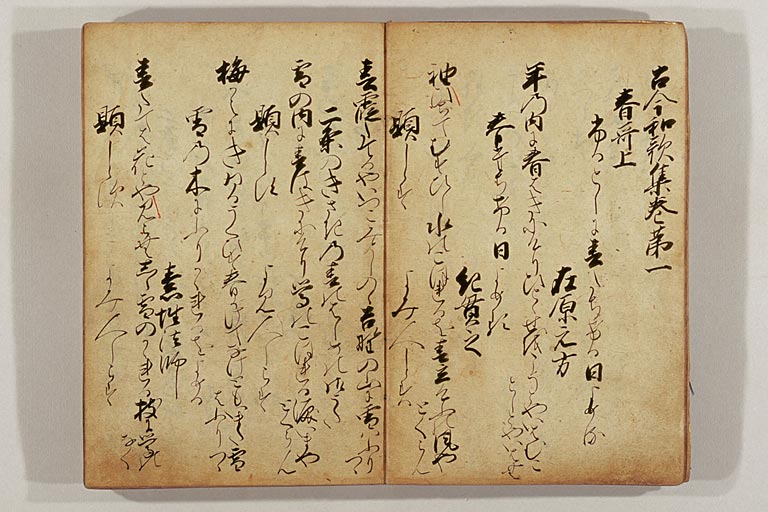 古今和歌集巻第一
春哥上
ふるとしに春たちける日よめる
在原元方
年の内に春はきにけりひとゝせをこそとやいはむことしとやいはむ
春たちける日よめる
紀貫之
袖ひちてむすひし水のこほれるを春立けふの風やとくらん
題しらす よみ人しらす
春霞たてるやいつこみよしのゝ吉野の山に雪はふりつゝ
二条のきさきの春のはしめの御うた
雪の内に春はきにけり鶯のこほれる涙いまやとくらん
題しらす よみ人しらす
梅かえにきゐるうくひす春かけてなけともいまた雪はふりつゝ
雪の木にふりかゝれるをよめる
素性法師
春たては花とや見らむ白雪のかゝれる枝に鶯のなく
題しらす よみ人しらす